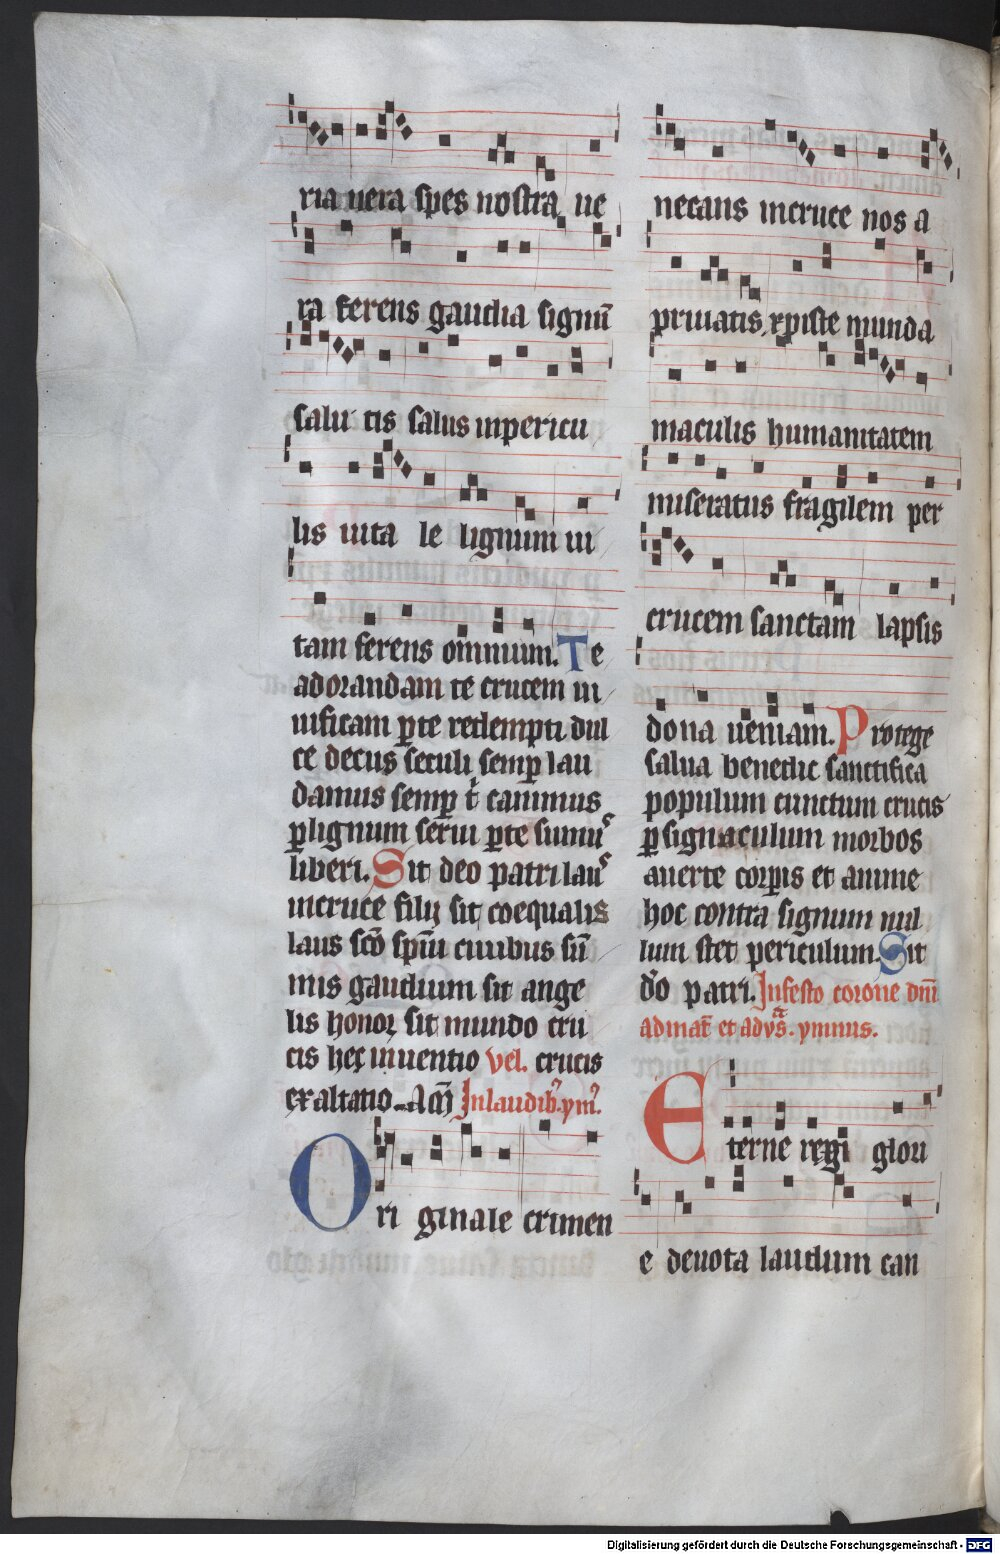 ria uera spes nostra ue
ra ferens gaudia signū
salu tis salus inpericu
lis uita le lignum ui
tam ferens omnium. Te
adorandam te crucem ui
uificam ꝑte redempti dul
ce decus seculi semꝑ lau
damus semꝑ t̄ canimus
ꝑlignum serui ꝑte sumus
liberi. Sit deo patri laus
incruce filij sit coequalis
laus scō spiū cuibus sū
mis gaudium sit ange
lis honor sit mundo cru
cis hec inuentio vel. crucis
exaltatio. Am̄ Inlaudib'.ym'.
Ori ginale crimen
necans incruce nos a
priuatis xpiste munda
maculis humanitatem
miseratus fragilem per
crucem sanctam lapsis
dona ueniam. Protege
salua benedic sanctifica
populum cunctum crucis
ꝑ signaculum morbos
auerte corꝑis et anime
hoc contra signum nul
lum stet periculum. Sit
dō patri. Infesto corone dnī
admat̄ et adv̄s. ymnus.
Eterne regi glori
e deuota laudum can
Digitalisierung gefördert durch die Deutsche Forschungsgemeinschaft - DFG